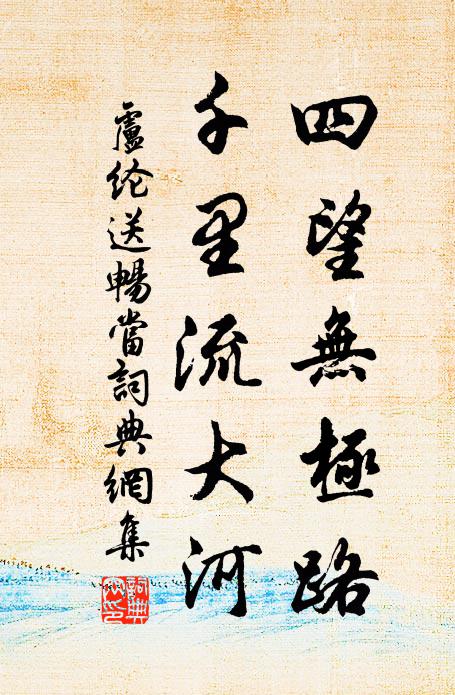 四望無極路
千里流大河
盧纶送暢當詞典網集